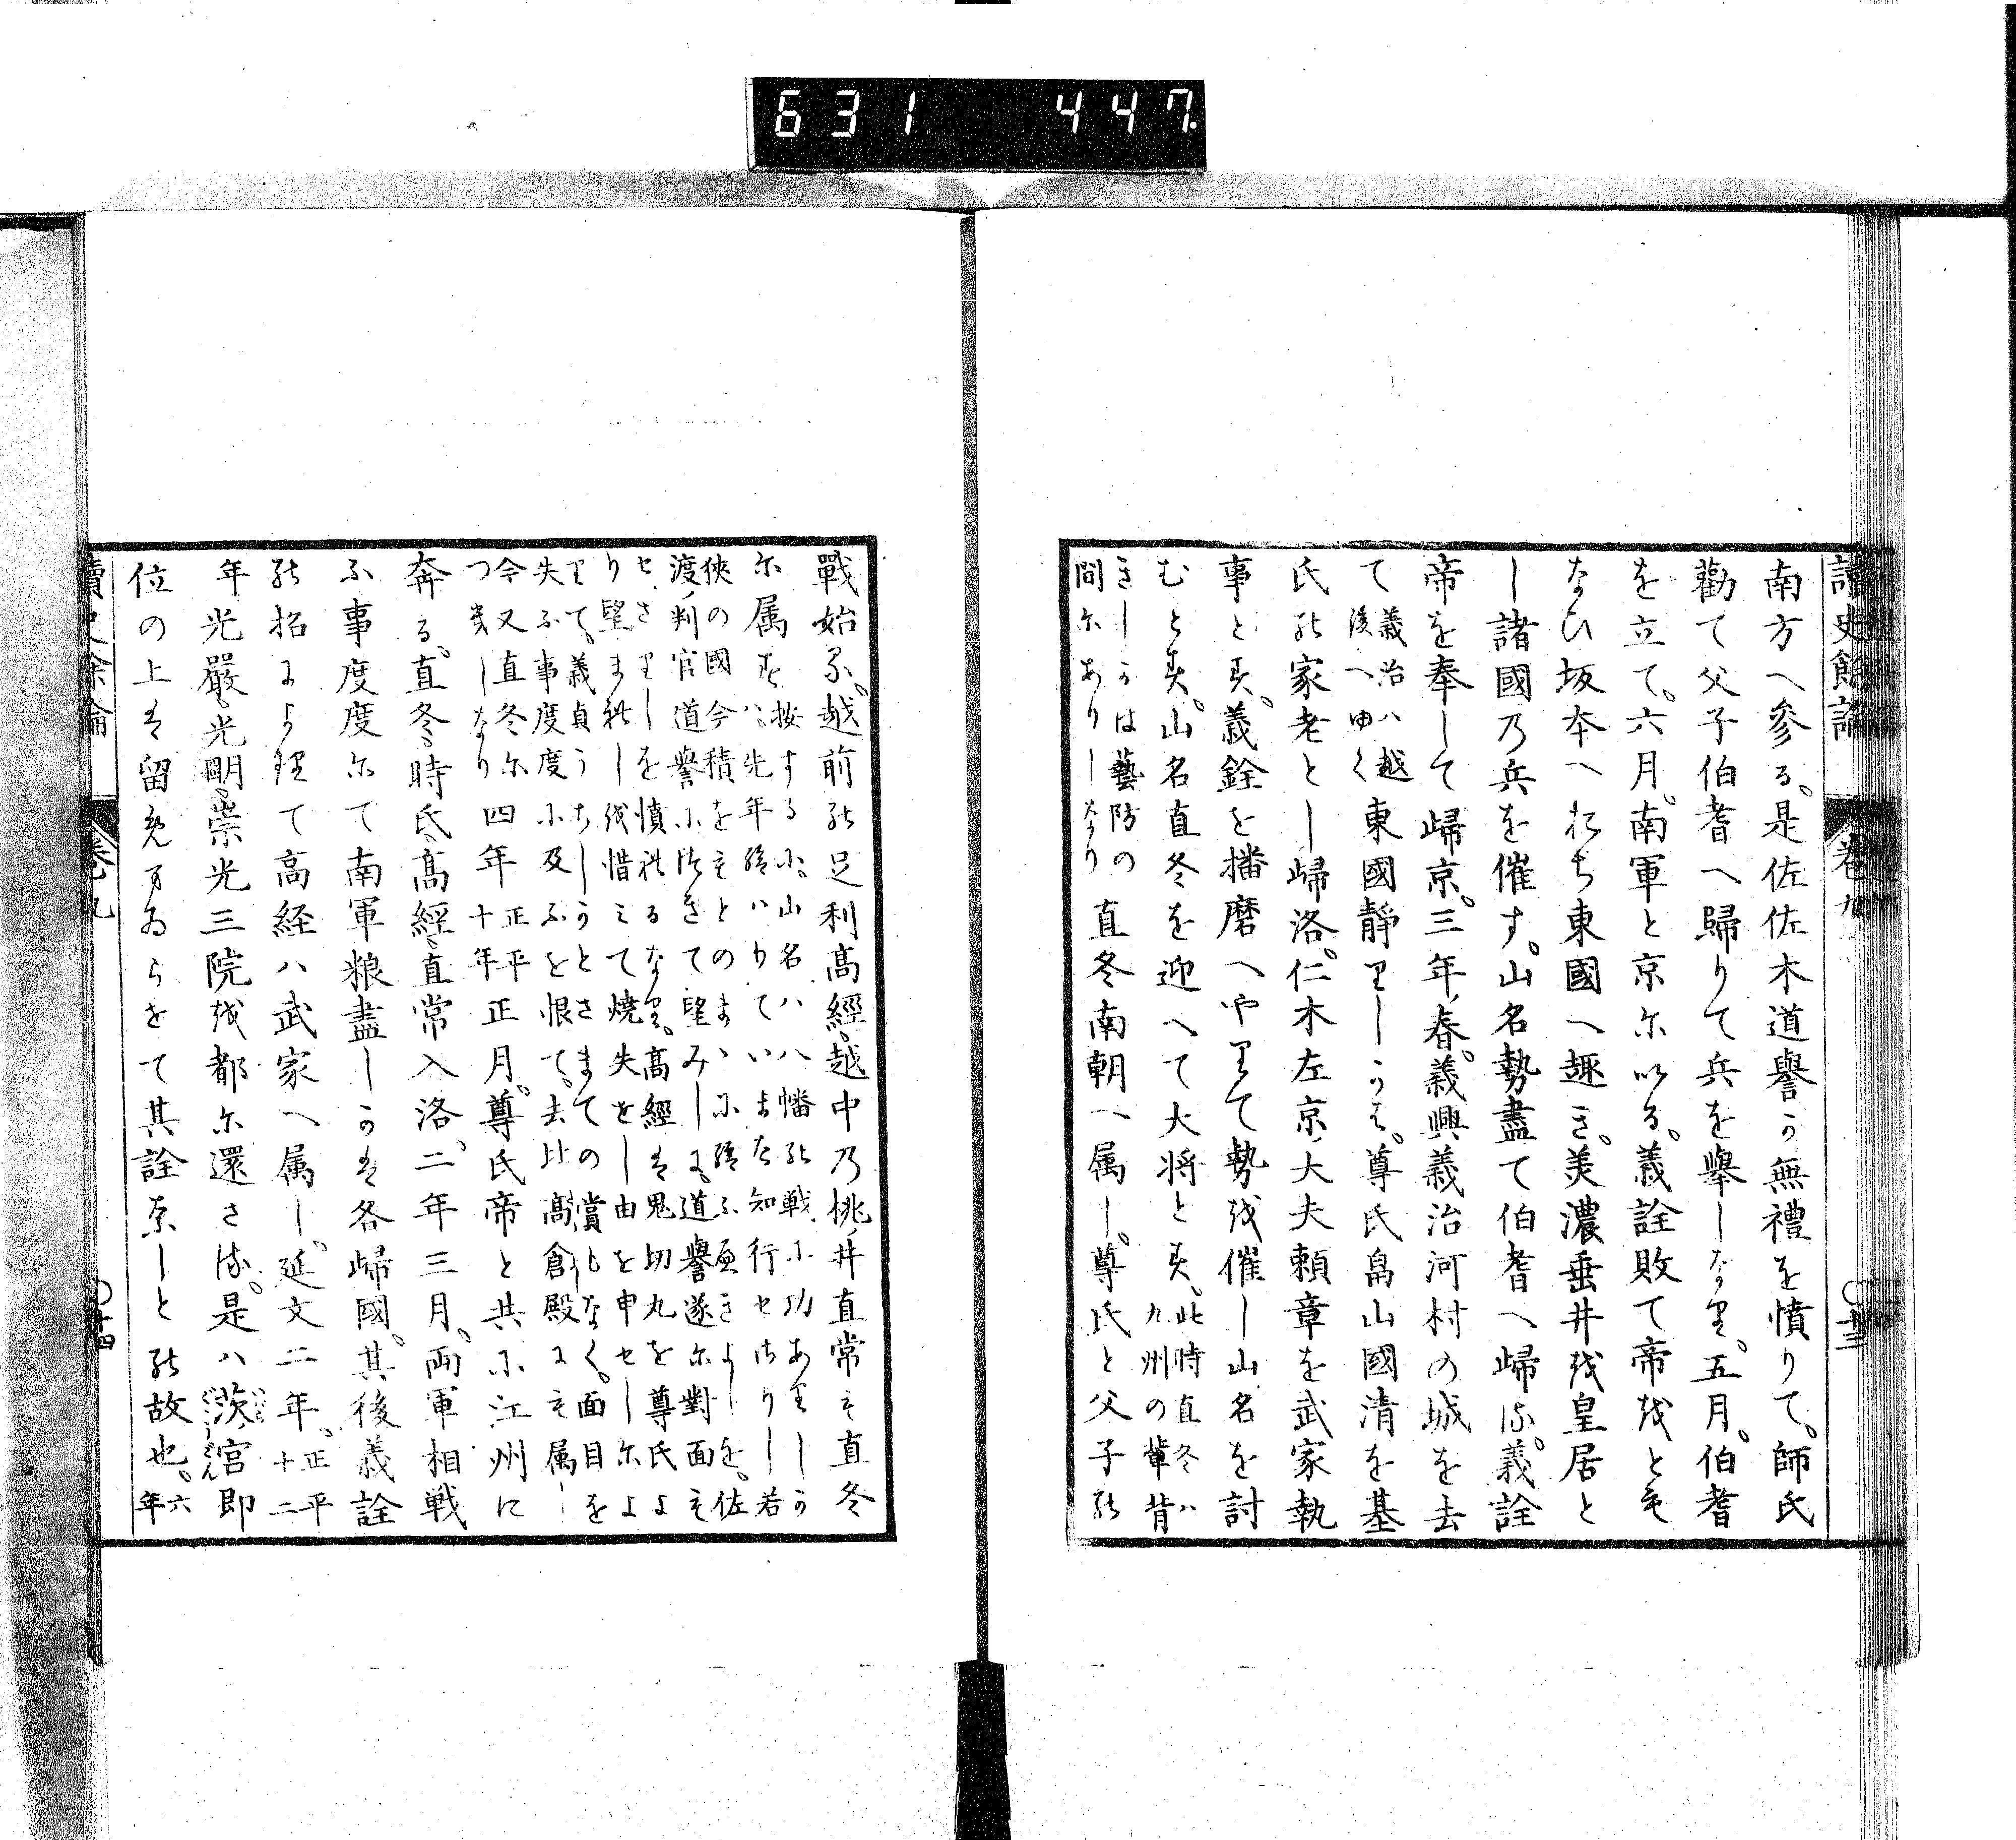 631 447
讀史餘論 卷九 〇廿三
南方へ參る。是佐佐木道譽か無禮を憤りて。師氏
勸て父子伯耆へ歸りて兵を擧しなり。五月。伯耆
を立て。六月。南軍と京に以る。義詮敗て帝をとも
なひ坂本へおち東國へ趣き。美濃垂井を皇居と
し諸國乃兵を催す。山名勢盡て伯耆へ歸る。義詮
帝を奉して歸京。三年春。義興義治河村の城を去
て
義治ハ越
後へゆく
東國靜りしかは。尊氏畠山國清を基
氏の家老とし歸洛。仁木左京大夫頼章を武家執
事とす。義銓を播磨へやりて勢を催し山名を討
むとす。山名直冬を迎へて大将とす。
此時直冬ハ
九州の輩背
きしかは藝防の
間にありしなり
直冬南朝へ属し。尊氏と父子の
戰始る。越前の足利高經越中乃桃井直常も直冬
に属す
按するに。山名ハ八幡の戦に功ありしか
ハ。先年給ハりていまた知行せさりし若
狹の國今積をもとのまゝに給ふへきよしを。佐
渡判官道譽に付きて望みしに。道譽遂に對面も
せ。さりしを憤れるなり。高經は鬼切丸を尊氏よ
り望まれしを惜みて燒失せし由を申せしによ
りて。義貞うちしかとさまての賞もなく。面目を
失ふ事度度に及ふを恨て。去比高倉殿にも属し
今又直冬に
つきしなり
四年
正平
十年
正月。尊氏帝と共に江州に
奔る。直冬時氏高經直常入洛。二年三月。両軍相戦
ふ事度度にて南軍粮盡しかは各歸國。其後義詮
の招によりて高経ハ武家へ属し。延文二年。
正平
十二
年光嚴光明崇光三院を都に還さる。是ハ茨宮即
位の上は留めまゐらせて其詮なしとの故也。
六
年
讀史餘論 卷九 〇廿四